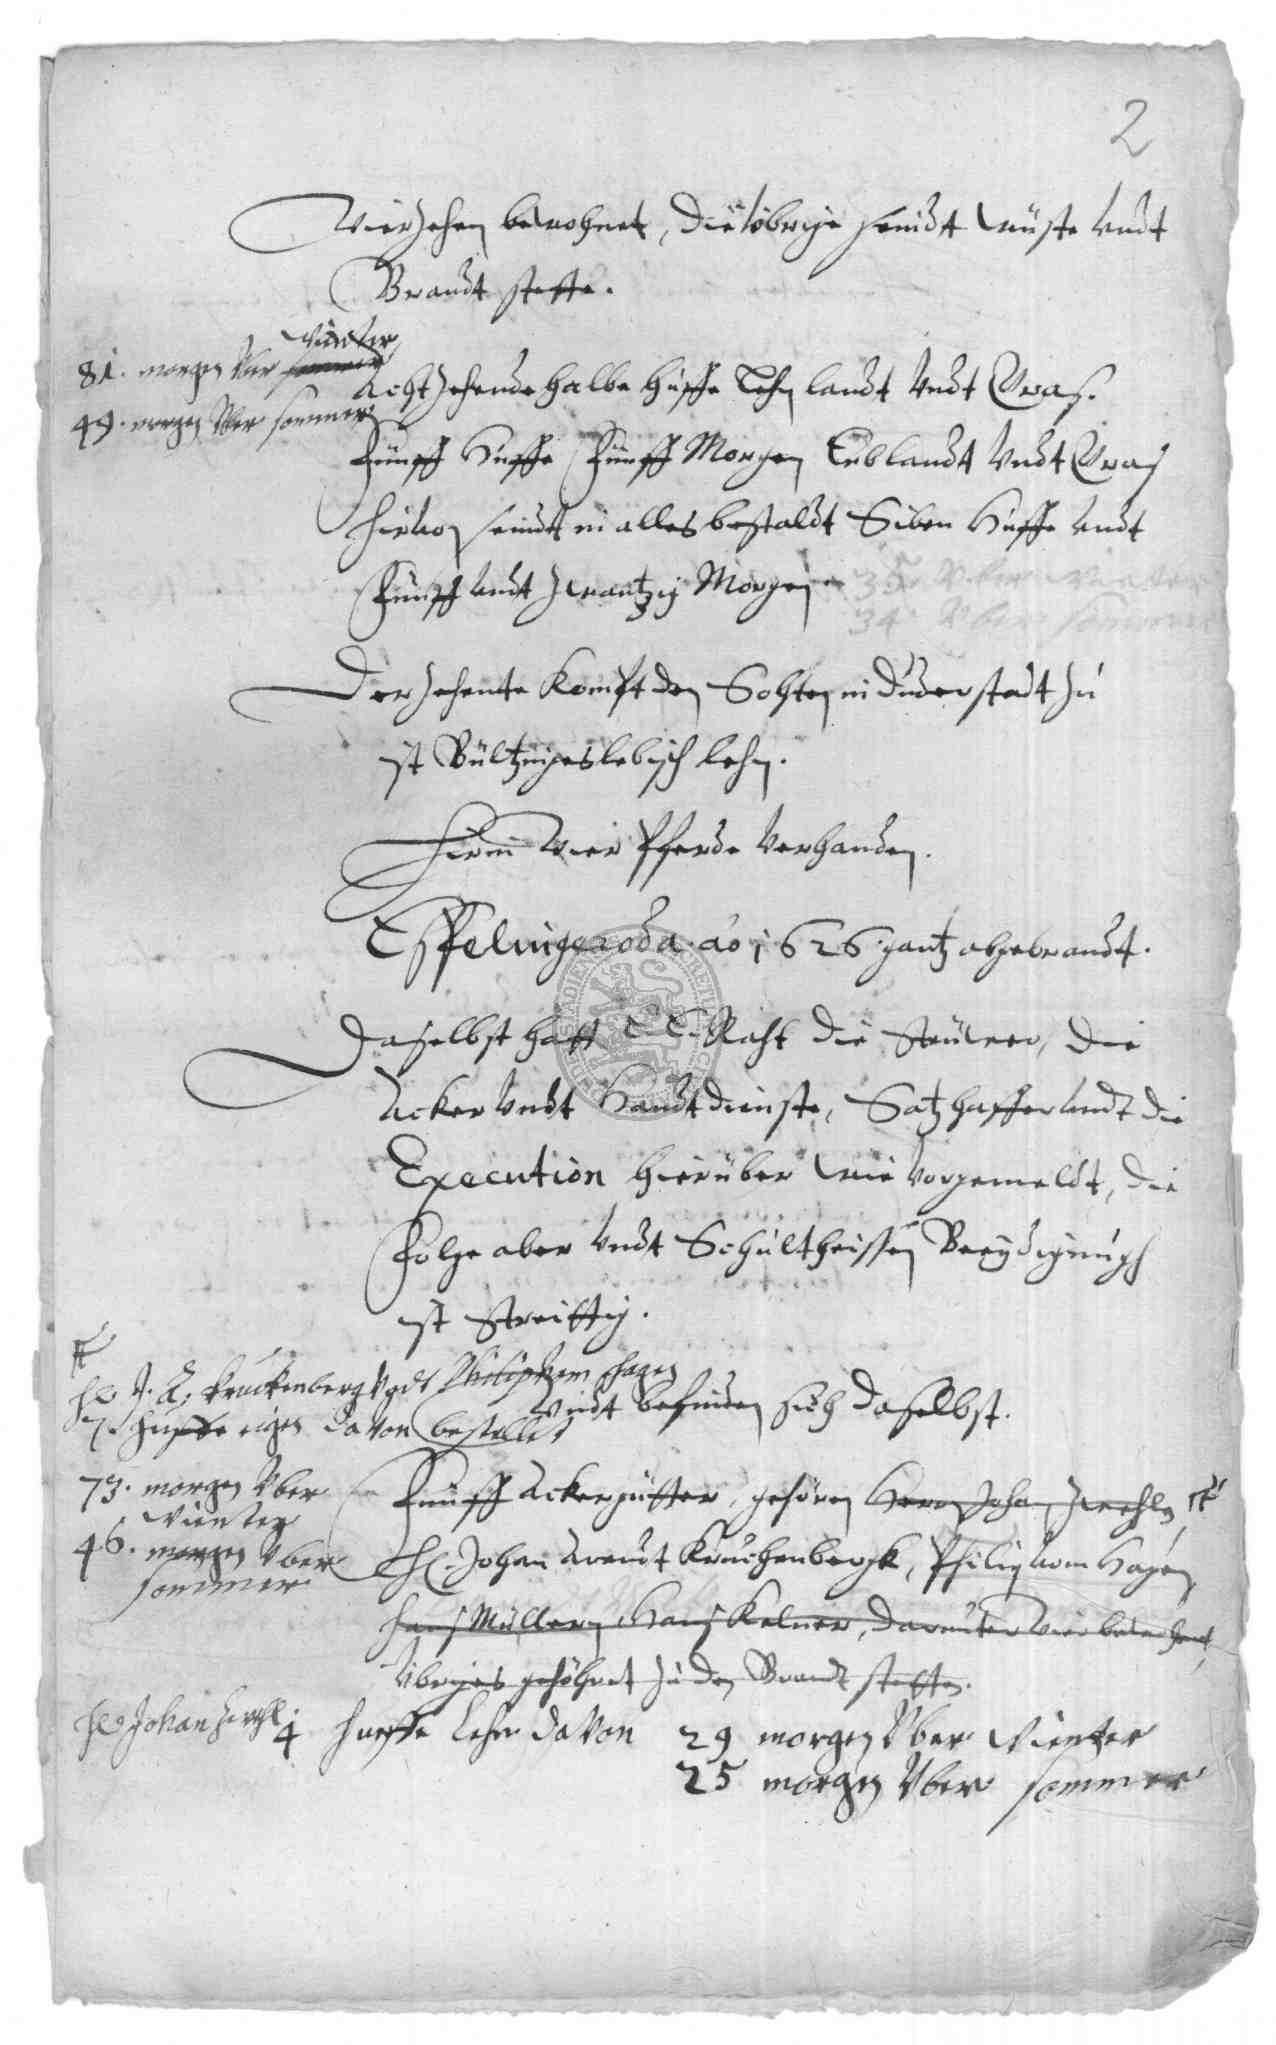 2
Vierzehen bewohnet, die übrige seindt wüste undt
Brandt stette.
winter
81. morgen uber sommer
49. morgen uber sommer
Acht zehende halbe Huffe Lehn landt undt Gras.
Fünff Huffe Fünff Morgen Erblandt undt Gras
hirvon seindt in alles bestaldt Siben Huffe undt
Fünff undt zwantzig Morgen
35. uber winter
34. uber sommer
Der zehente kompt den in Duderstadt zu
ist Bültzingeslebisch lehn.
Hirin vier Pferde verhanden.
Esselingeroda ao 1626 gantz abgebrandt.
Daselbst hatt E E Raht die Steüwer, die
Acker undt Handtdienste, Satzhaffer undt die
Execution hierüber wie vorgemeldt, die
Folge aber undt Schultheissen Beeydigungh
ist Streittig.
H J. A. kruckenberg undt Philip vom hagen
7. huffe eigen davon bestellet
undt befinden sich daselbst.
73. morgen uber
winter
46. morgen uber
sommer
Fünff Ackergütter, gehören Herrn Johan
H. Johan Arendt Kruchenbergk, Philip vom Hagen
Hans Müllern, Hans Kelner, darunter vier bewohnet
Übriges gehöhret zu den Brandt stetten.
H Johan 4 hueffe Lehn davon 29 morgen uber winter
25 morgen uber sommer